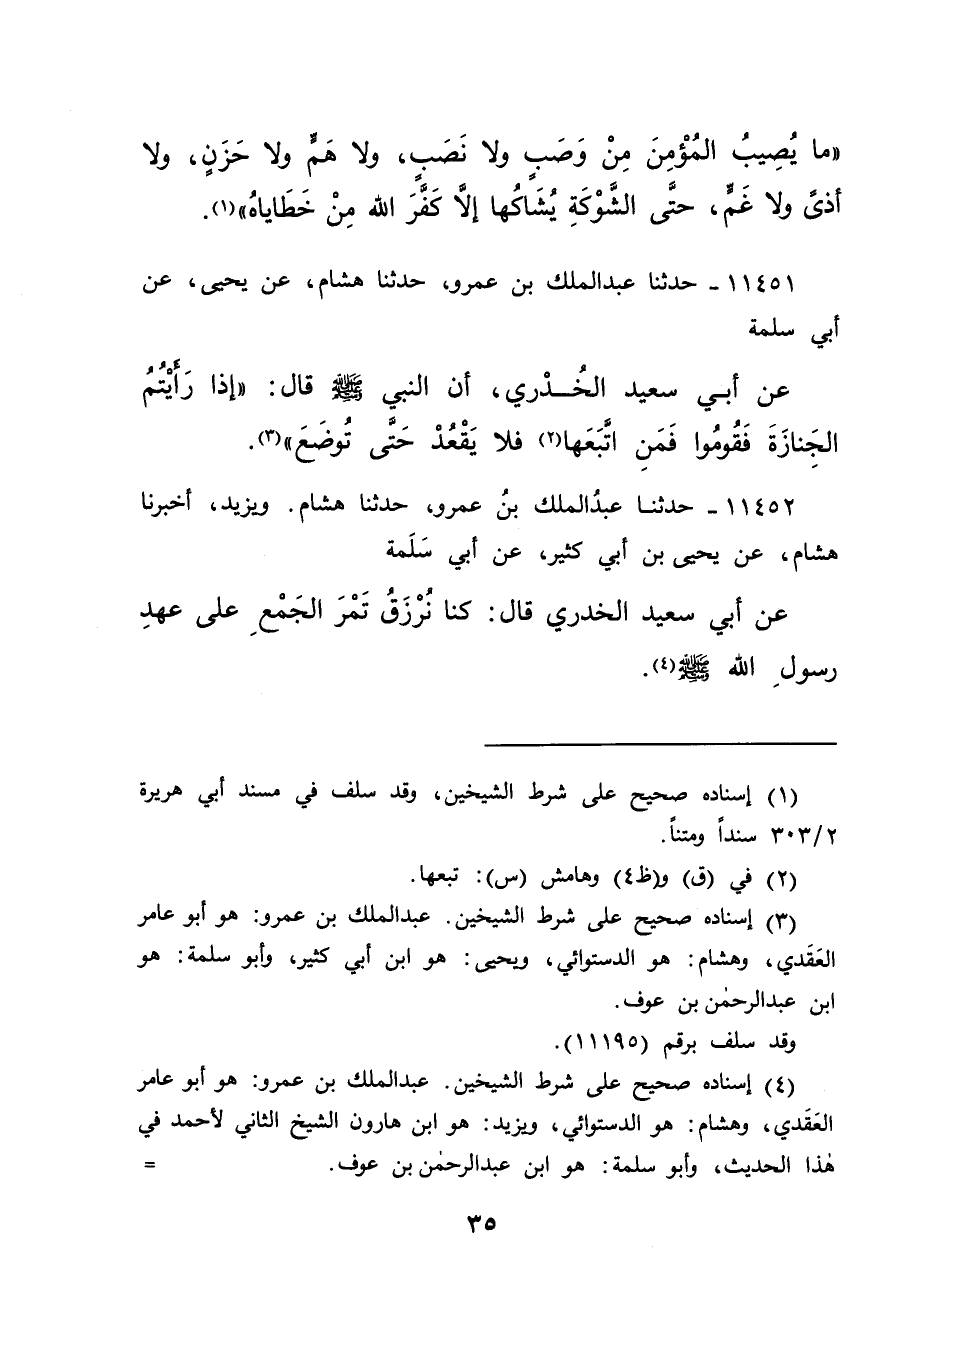 «ما يُصِيبُ المُؤْمِنَ مِنْ وَصَبٍ ولا نَصَبٍ، ولا هَمٍّ ولا حَزَنٍ، ولا
أذىً ولا غَمٍّ، حتَّى الشَّوْكَةِ يُشَاكُها إلَّا كَفَّرَ الله مِنْ خَطَاياهُ»(١).
١١٤٥١ - حدثنا عبدالملك بن عمرو، حدثنا هشام، عن يحيى، عن
أبي سلمة
عن أبـي سعيد الخُــدْري، أن النبي ﷺ قال: «إذا رَأَيْتُمُ
الجَنازَةَ فَقُومُوا فَمَنِ اتَّبَعَها(٢) فلا يَقْعُدْ حَتَّى تُوضَعَ»(٣).
١١٤٥٢ - حدثنـا عبدُالملك بنُ عمرو، حدثنا هشام. ويزيد، أخبرنا
هشام، عن يحيى بن أبي كثير، عن أبي سَلَمة
عن أبي سعيد الخدري قال: كنا نُرْزَقُ تَمْرَ الجَمْعِ على عهدِ
رسولِ الله ﷺ(٤).
(١) إسناده صحيح على شرط الشيخين، وقد سلف في مسند أبي هريرة
٣٠٣/٢ سنداً ومتناً.
(٢) في (ق) و(ظ٤) وهامش (س): تبعها.
(٣) إسناده صحيح على شرط الشيخين. عبدالملك بن عمرو: هو أبو عامر
العَقَدي، وهشام: هو الدستوائي، ويحيى: هو ابن أبي كثير، وأبو سلمة: هو
ابن عبدالرحمٰن بن عوف.
وقد سلف برقم (١١١٩٥).
(٤) إسناده صحيح على شرط الشيخين. عبدالملك بن عمرو: هو أبو عامر
العَقَدي، وهشام: هو الدستوائي، ويزيد: هو ابن هارون الشيخ الثاني لأحمد في
هٰذا الحديث، وأبو سلمة: هو ابن عبدالرحمٰن بن عوف. =
٣٥